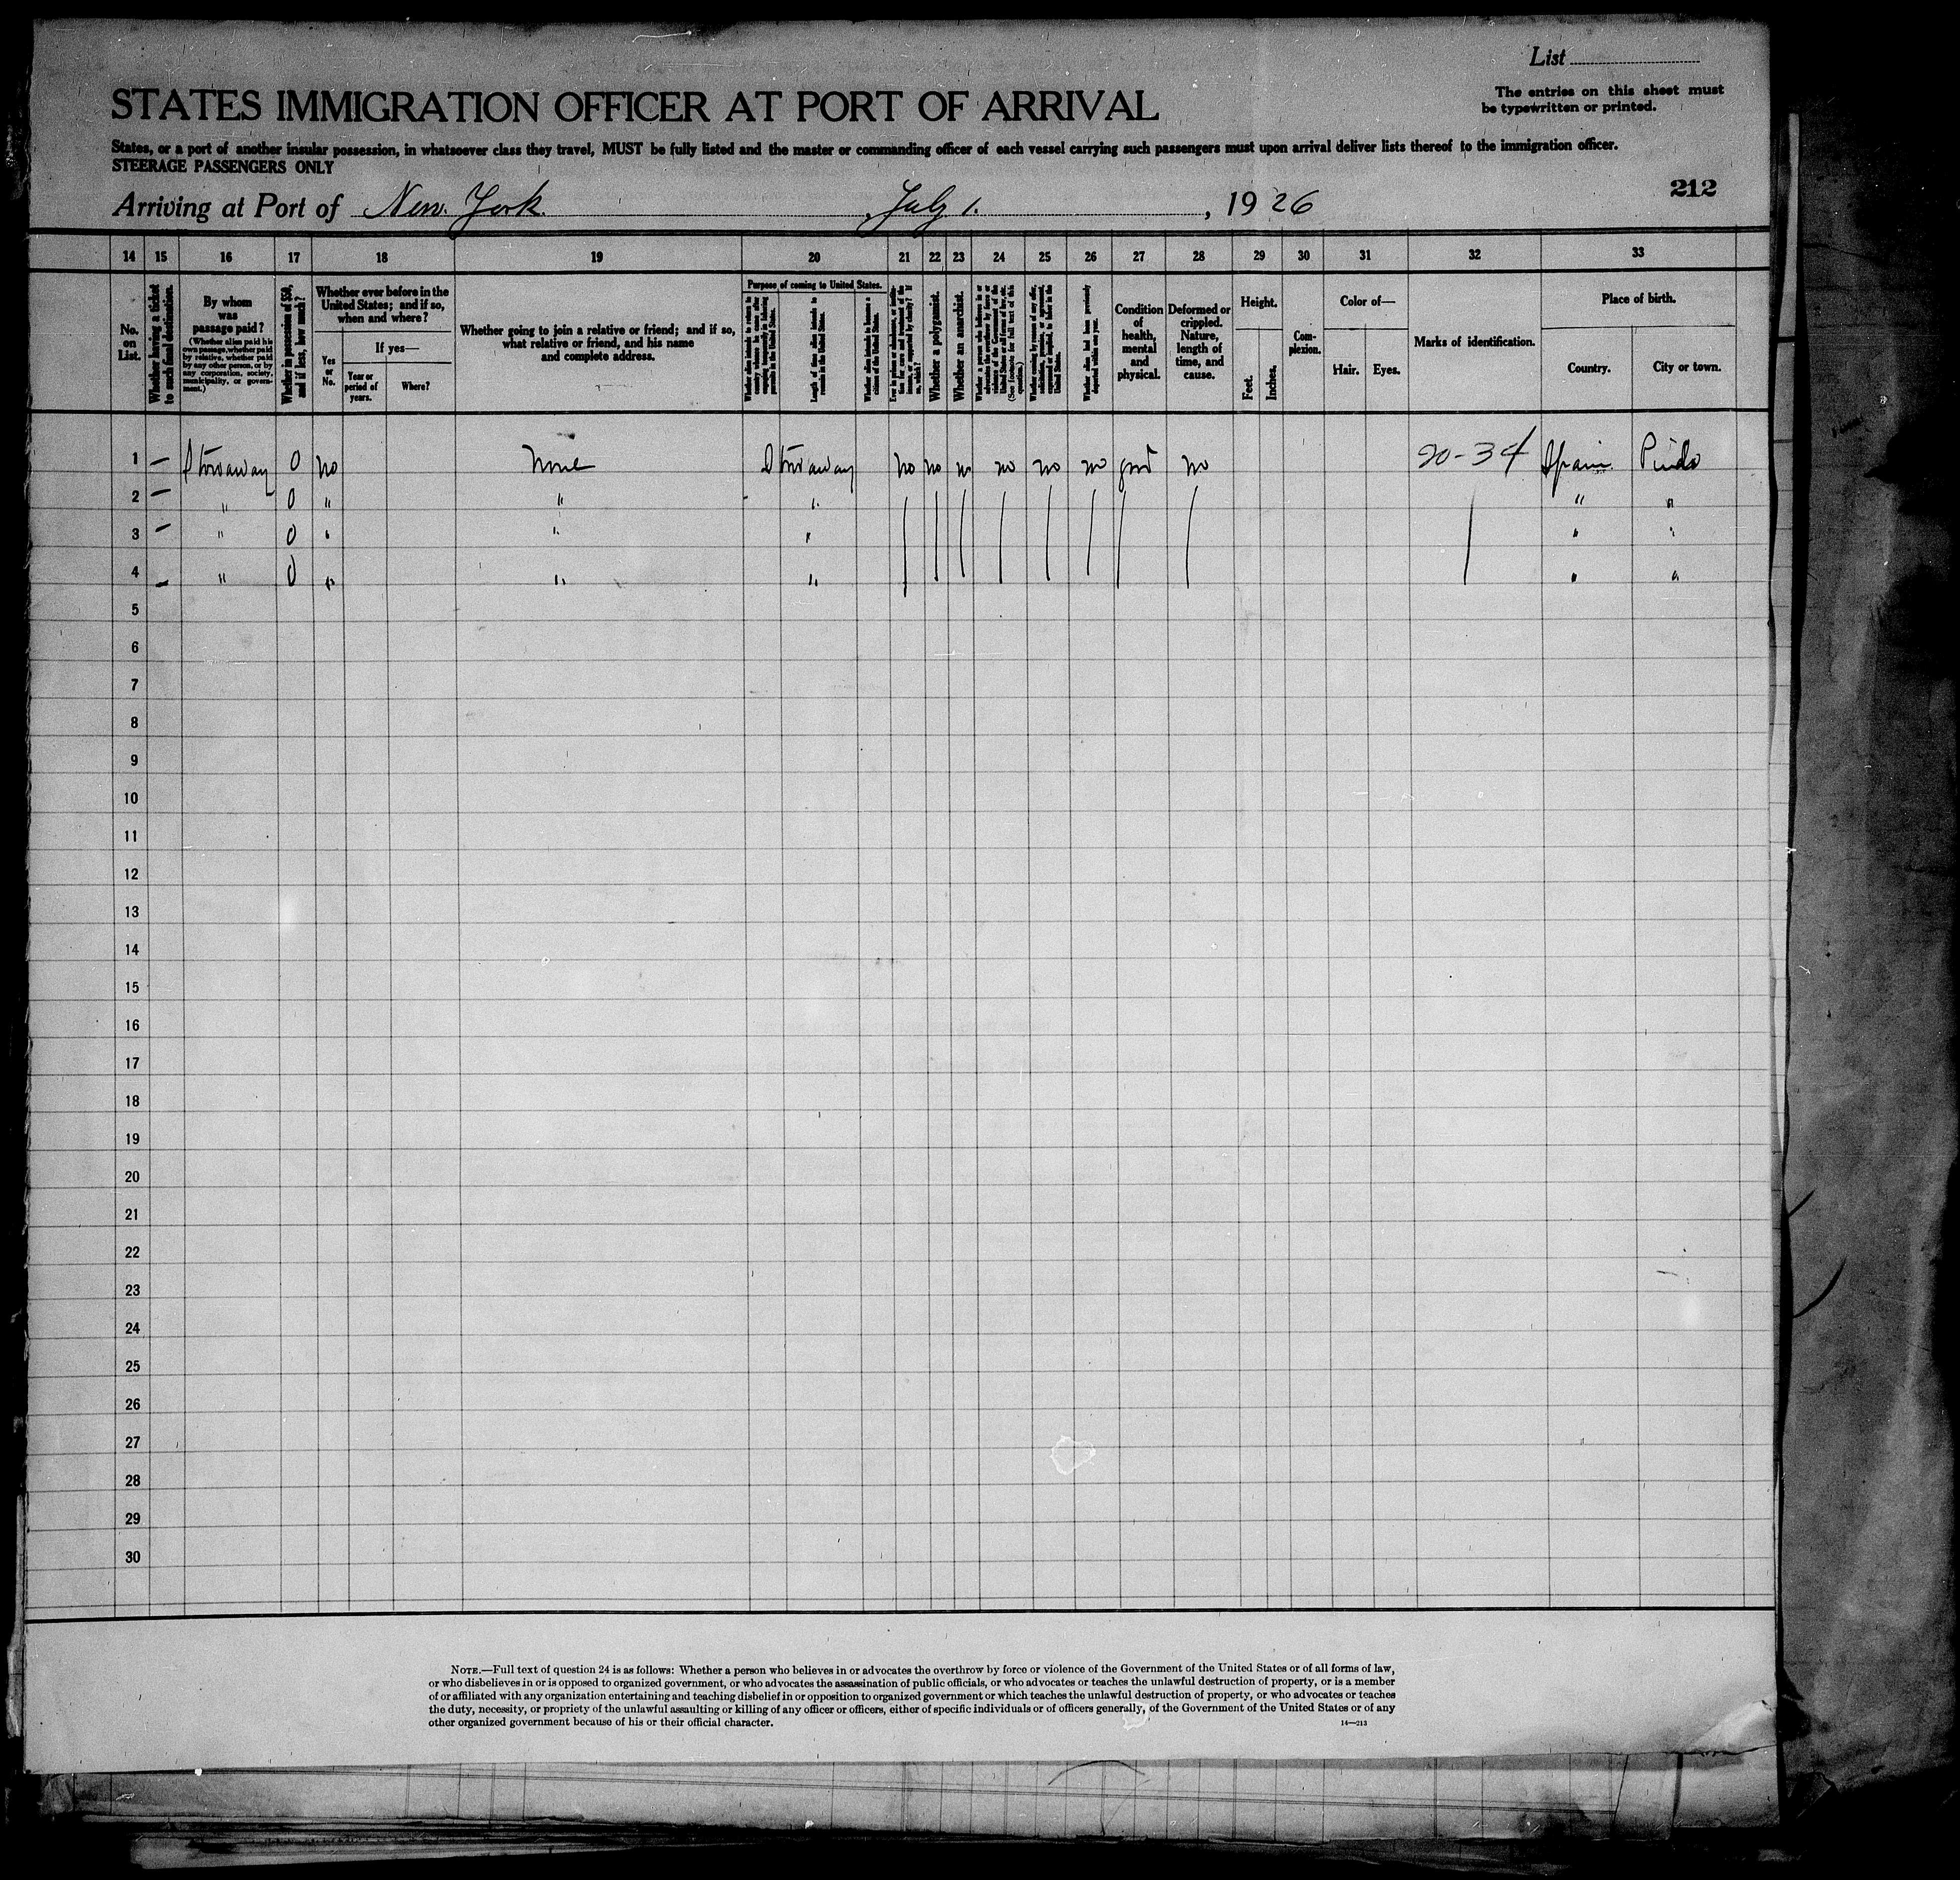 List
STATES IMMIGRATION OFFICER AT PORT OF ARRIVAL
The entries on this sheet must
be typewritten or printed.
States, or a port of another insular possession, in whatsoever class they travel, MUST be fully listed and the master or commanding officer of each vessel carrying such passengers must upon arrival deliver lists thereof to the immigration officer.
STEERAGE PASSENGERS ONLY
212
Arriving at Port of New York. , July 1. , 1926
14 15 16 17 18 19 20 21 22 23 24 25 26 27 28 29 30 31 32 33
No. on List.
Whether having a ticket to such final destination.
By whom was passage paid?
(Whether alien paid his own passage, whether paid by relative, whether paid by any other person, or by any corporation, society, municipality, or government.)
Whether in possession of $50, and if less, how much?
Whether ever before in the United States; and if so, when and where?
Yes or No.
If yes—
Year or period of years.
Where?
Whether going to join a relative or friend; and if so, what relative or friend, and his name and complete address.
Purpose of coming to United States.
Length of time alien intends to remain in the United States.
Whether alien intends to become a citizen of the United States.
Whether a polygamist.
Whether an anarchist.
Condition of health, mental and physical.
Deformed or crippled. Nature, length of time, and cause.
Height.
Feet.
Inches.
Complexion.
Color of—
Hair.
Eyes.
Marks of identification.
Place of birth.
Country.
City or town.
1 — Stowaway 0 no none Stowaway no no no no no no good no 90-34 Spain
2 — " 0 " " " " "
3 — " 0 " " " " "
4 — " 0 " " " " "
5
6
7
8
9
10
11
12
13
14
15
16
17
18
19
20
21
22
23
24
25
26
27
28
29
30
NOTE.—Full text of question 24 is as follows: Whether a person who believes in or advocates the overthrow by force or violence of the Government of the United States or of all forms of law,
or who disbelieves in or is opposed to organized government, or who advocates the assassination of public officials, or who advocates or teaches the unlawful destruction of property, or is a member
of or affiliated with any organization entertaining and teaching disbelief in or opposition to organized government or which teaches the unlawful destruction of property, or who advocates or teaches
the duty, necessity, or propriety of the unlawful assaulting or killing of any officer or officers, either of specific individuals or of officers generally, of the Government of the United States or of any
other organized government because of his or their official character.
14—213